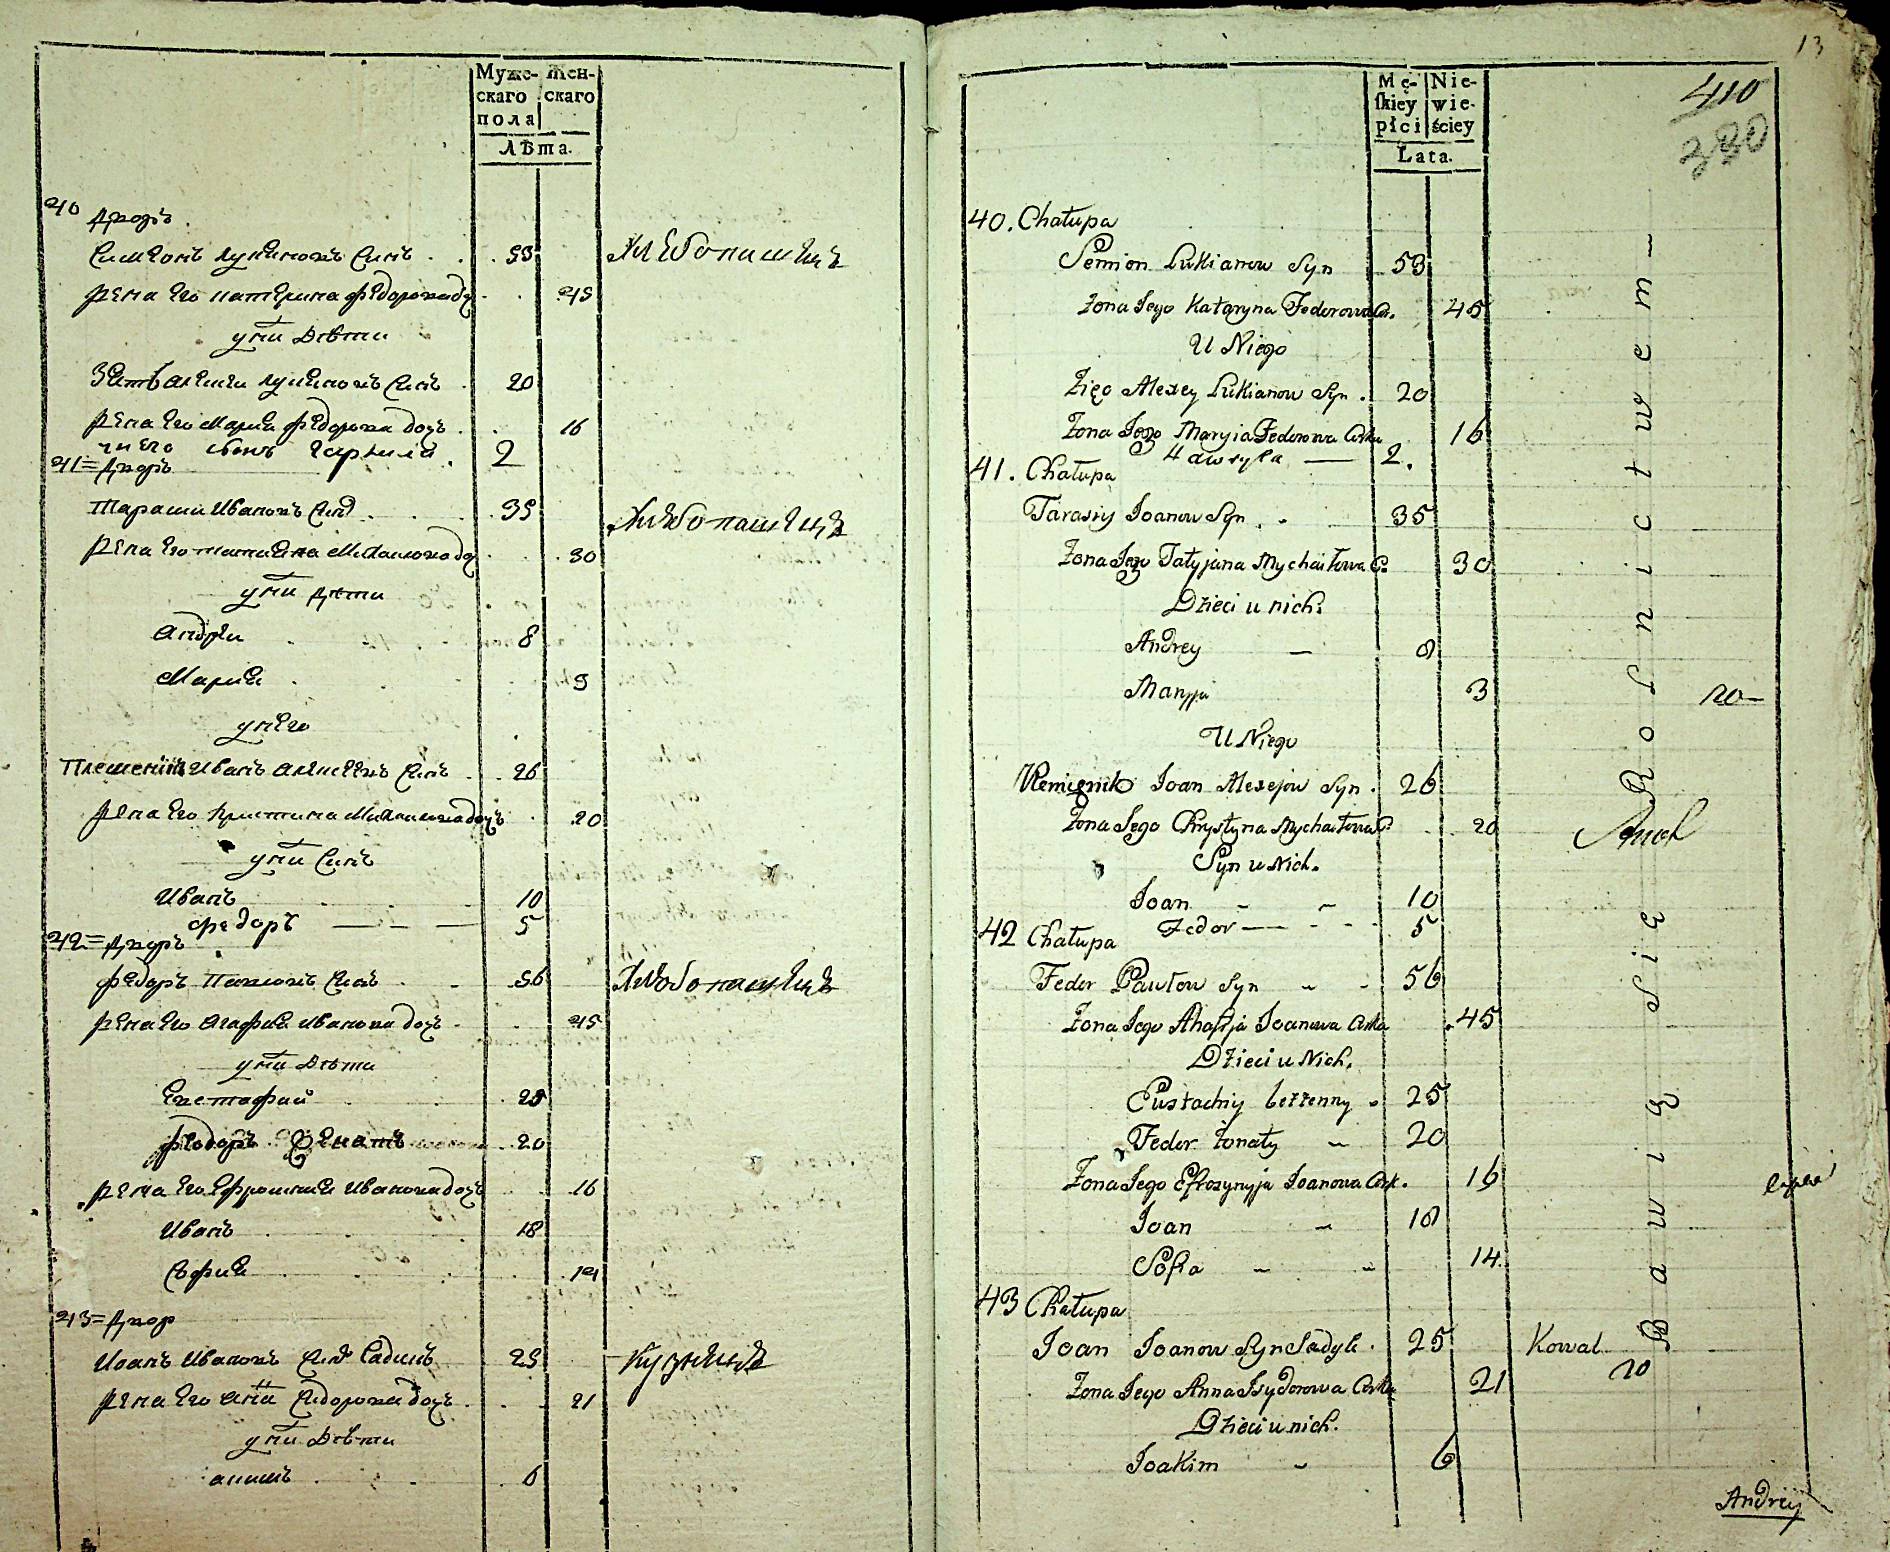 Муже-
скаго
пола
Жен-
скаго
Лѣта.
40 Дворъ.
Симеонъ Лукяновъ Синъ 53 Хлебопашецъ
Жена Его Катерина Федорова до 45
у ни Дѣти
Зять Алексей Лукяновъ Синъ 20
Жена Его Мария Федорова доч 16
у него сынъ Гаврила 2
41=Дворъ
Тарасий Ивановъ Син 35 Хлебопашецъ
Жена Его Татияна Михайлова до 30
у них Дѣти
Андрей 8
Мария 3
у него
Племенникъ Иванъ Алексеевъ Синъ 26
Жена Его Христина Михайлова дочъ 20
у них Синъ
Иванъ 10
Федоръ 5
42=Дворъ
Федоръ Павловъ Синъ 56 Хлебопашецъ
Жена Его Агафия Иванова доч 45
у них Дѣти
Евстафий 25
Федоръ Женатъ 20
Жена Его Ефросиния Иванова доч 16
Иванъ 18
София 14
43=Двор
Иванъ Ивановъ Син Садикъ 25 Кузнецъ
Жена Его Анна Сидорова доч 21
у них Дѣти
Акимъ 6
13
410
380
Mę-
skiey
płci
Nie-
wie-
ściey
Lata.
40. Chałupa
Semion Łukianow Syn 53
Żona Jego Kataryna Fedorowa C. 45
U Niego
Zięć Alexey Łukianow Syn. 20
Żona Jego Maryia Fedorowa Curka 16
Hawryła — 2.
41. Chałupa
Tarasiy Joanow Syn 35
Żona Jego Tatyjana Mychaiłowa C. 30
Dzieci u nich.
Andrey — 8
Maryja 3
U Niego
Plemiennik Joan Alexejow Syn. 26
Żona Jego Chrystyna Mychaiłowa C. 20
Syn u Nich.
Joan 10
Fedor — 5
42 Chałupa
Feder Pawłow Syn 56
Żona Jego Ahafija Joanowa Curka 45
Dzieci u Nich.
Eustachiy beżżenny 25
Fedor żonaty 20
Żona Jego Efrozynyja Joanowa Curk. 16
Joan 18
Sofia 14.
43 Chałupa
Joan Joanow Syn Sadyk. 25 Kowal
20
Żona Jego Anna Isydorowa Curka 21
Dzieci u nich.
Joakim 6
Bawią Się Rolnictwem —
20—
Andriy